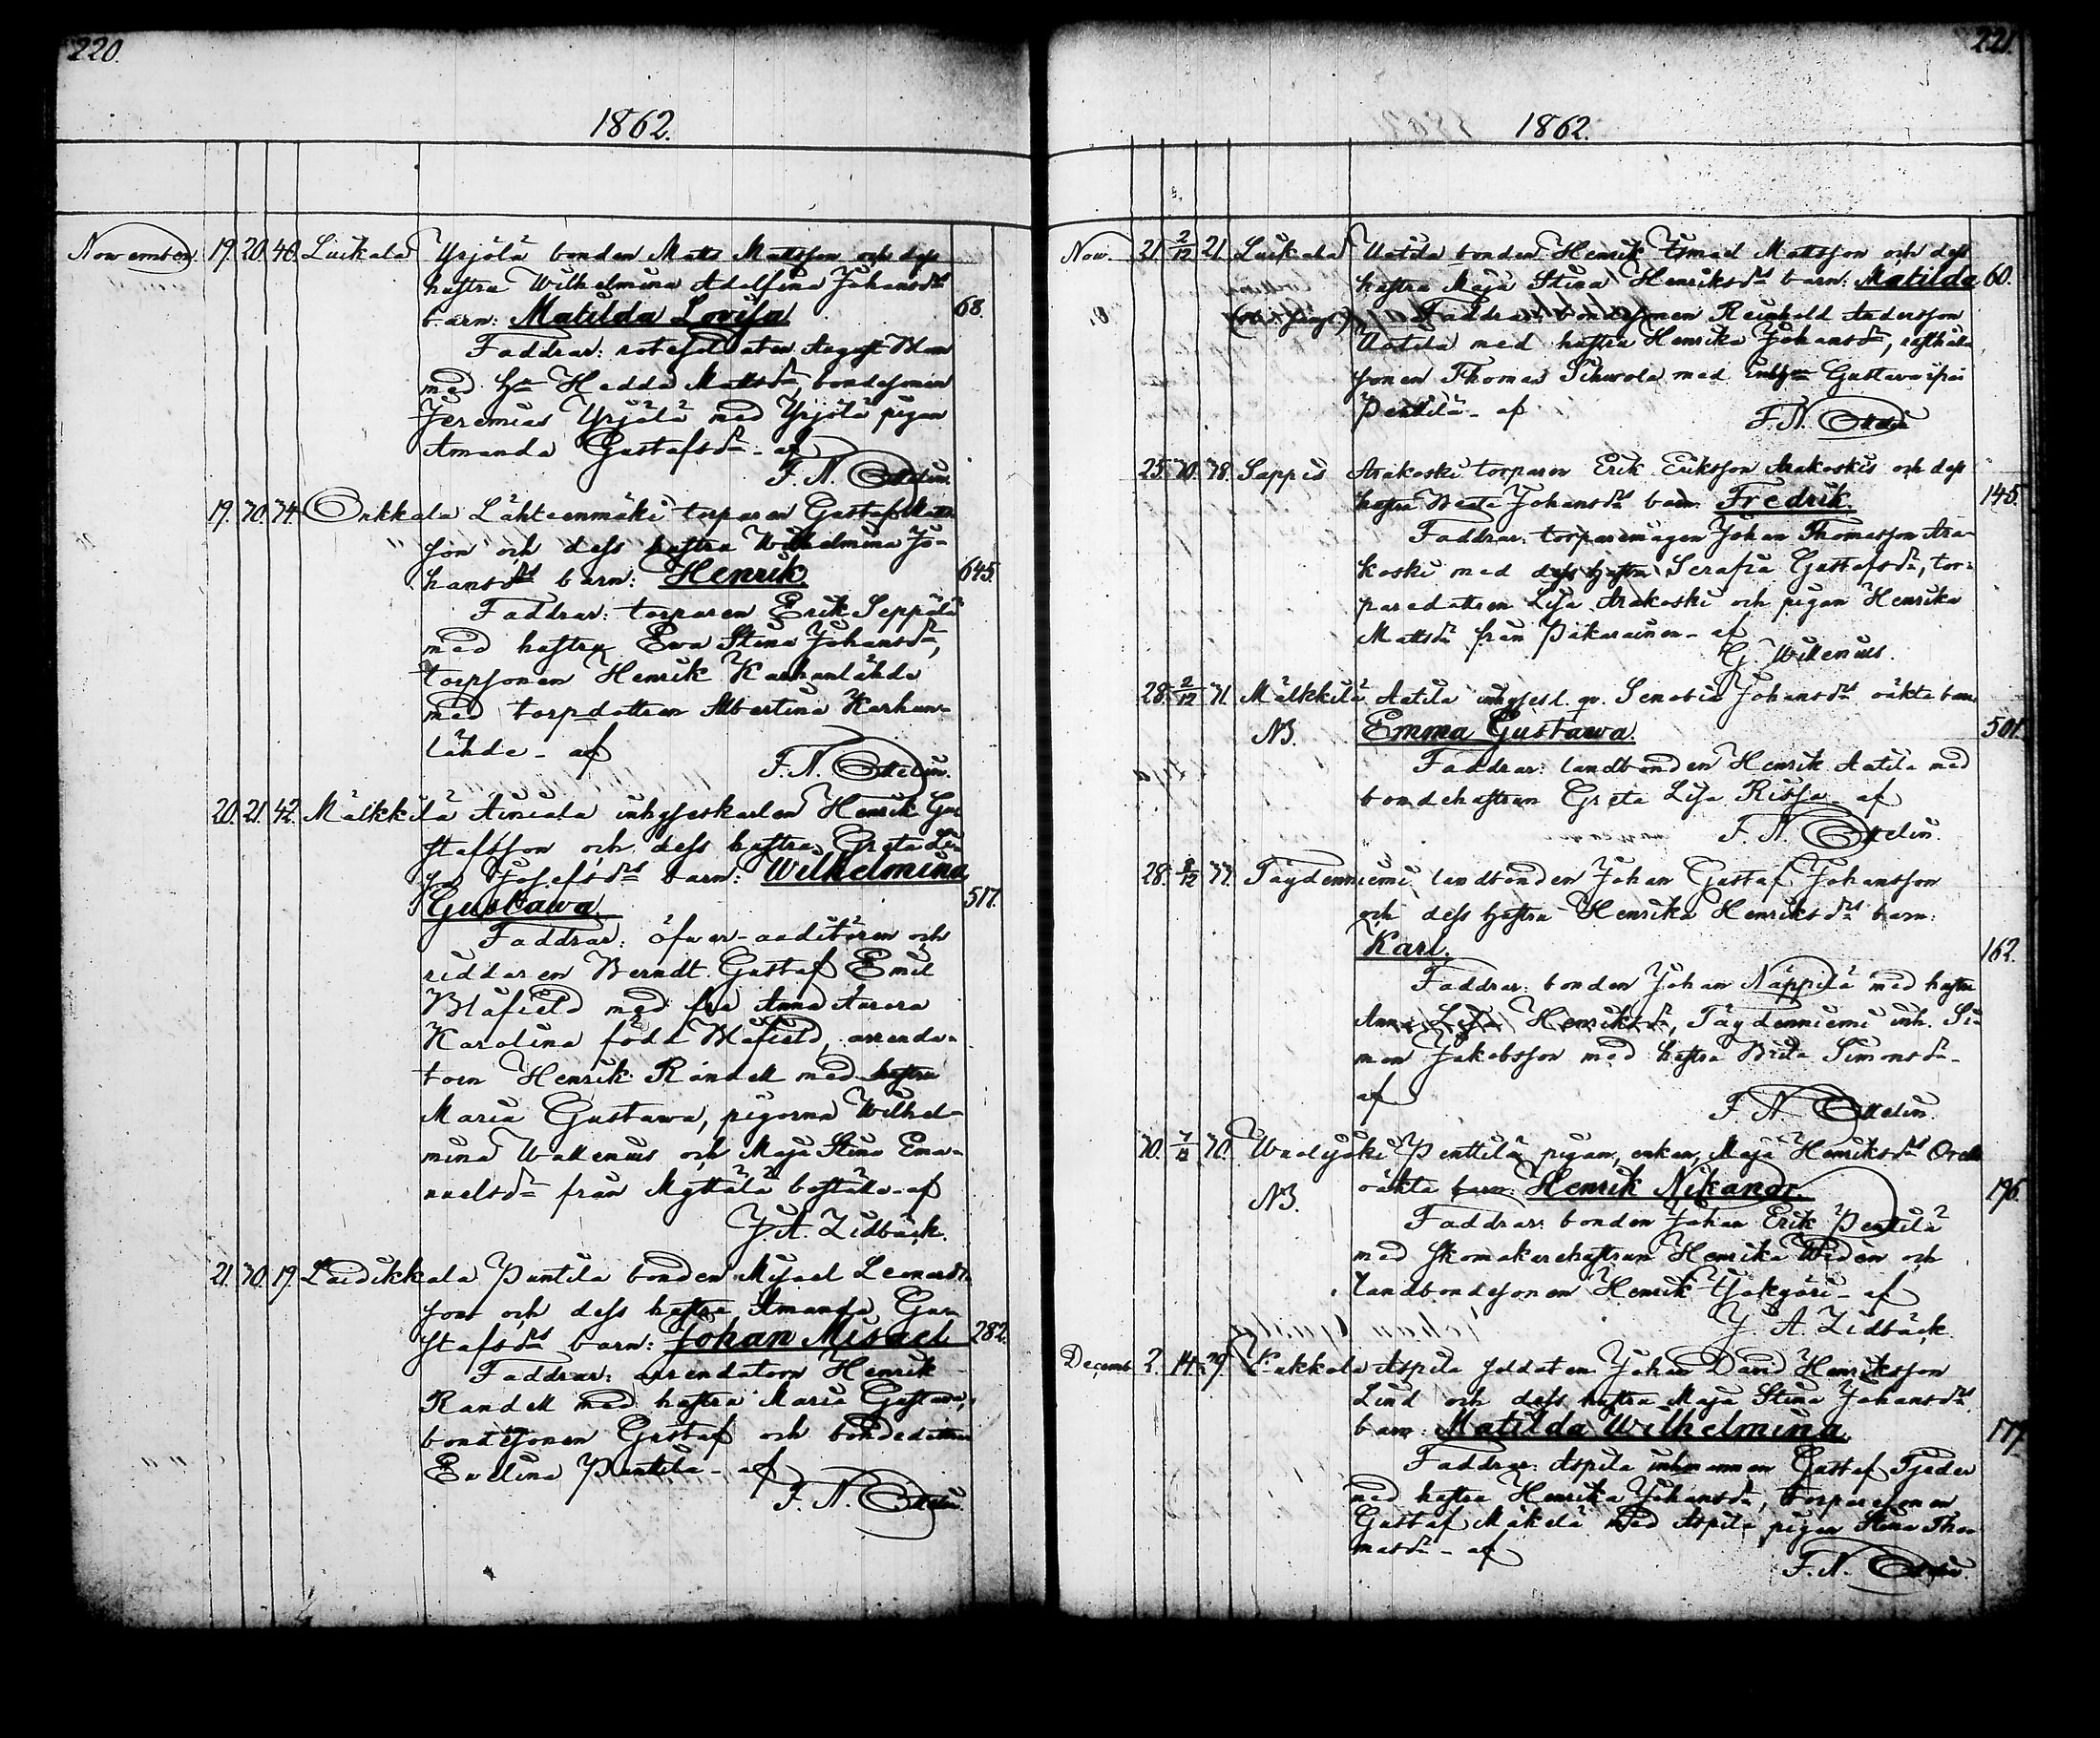 220.
1862.
November 19. 20. 40. Luikala Yrjölä bonden Matts Mattsson och dess
hustru Wilhelmina Adolfina Johansdrs
barn: Matilda Lovisa 68.
Faddrar: rotesoldaten August Blom
med h:u Hedda Mattsdr, bondesonen
Jeremias Yrjölä med Yrjölä pigan
Amanda Gustafsdr - af
F. N. Ottelin.
19. 30. 34. Onkkala Lähteenmäki torparen Gustaf Matts
son och dess hustru Wilhelmina Jo-
hansdrs barn: Henrik 645.
Faddrar: torparen Erik Seppälä
med hustru Ewa Stina Johansdr,
torpsonen Henrik Karhunlähde
med torpdottren Albertina Karhun-
lähde - af
F. N. Ottelin.
20. 21. 42. Mälkkilä inhyseskarlen Henrik Gu-
stafsson och dess hustru Greta Li-
sa Josefsdrs barn: Wilhelmina
Gustawa. 517.
Faddrar: öfwer-auditören och
riddaren Berndt Gustaf Emil
Blåfield med fru Anna Aurora
Karolina född Blåfield, arrenda-
torn Henrik Randell med hustru
Maria Gustawa, pigorna Wilhel-
mina Wallenius och Maja Stina Ema-
nuelsdr från Myttälä boställe - af
J. A. Lidbäck.
21. 30. 19. Laidikkala Puntila bonden Misael Leonards-
son och dess hustru Amanda Gu-
stafsdrs barn: Johan Misael 282.
Faddrar: arrendatorn Henrik
Randell med hustru Maria Gustawa,
bondesonen Gustaf och bondedottren
Ewelina Puntila - af
F. N. Ottelin.
221.
1862.
Nov. 21 2/12 21 Luikala Uotila bonden Henrik Mattsson och dess
hustru Maja Stina Henriksdrs barn: Matilda 60.
Faddrar: bondesonen Reinhold Andersson
Uotila med hustru Henrika Johansdr,
sonen Thomas med Gustawa
Penttilä - af F. N. Ottelin
25. 30. 38. Sappis Arakoski torparen Erik Eriksson Arakoskis och dess
hustru Beata Johansdrs barn Fredrik. 145.
Faddrar: torparemågen Johan Thomasson Ara-
koski med dess hustru Serafia Gustafsdr, tor-
paredottren Lisa Arakoski och pigan Henrika
Mattsdr från Pikarainen - af
G Wallenius.
28. 2/12 31. Mälkkilä Aatila inhyses l. qv. Senobia Johansdrs oäkta barn
NB. Emma Gustawa. 501.
Faddrar: landbonden Henrik Aatila med
bondehustrun Greta Lisa Rissa - af
F. N. Ottelin.
28. 8/12 37. Täydenniemi landbonden Johan Gustaf Johansson
och dess hustru Henrika Henriksdrs barn:
Karl. 162.
Faddrar: bonden Johan Näppilä med hustru
Anna Lisa Henriksdr, Täydenniemi inh. Si-
mon Jakobsson med hustru Brita Simonsdr -
af
F. N. Ottelin.
30. 30. Uusikylä Penttilä pigan, enkan, Maja Henriksdrs
NB. oäkta barn: Henrik Nikanor. 196.
Faddrar: bonden Johan Erik Pentilä
med skomakarehustrun Henrika Widen och
landbondesonen Henrik - af
J. A. Lidbäck
Decemb. 2. 14. 29. Kukkola Aspila soldaten Johan David Henriksson
Lind och dess hustru Maja Stina Johansdrs
barn: Matilda Wilhelmina. 177.
Faddrar: Aspila inhmannen Gustaf Tjeder
med hustru Henrika Johansdr, torparesonen
Gustaf Mäkelä med Aspila pigan Stina Tho-
masdr - af
F. N. Ottelin.